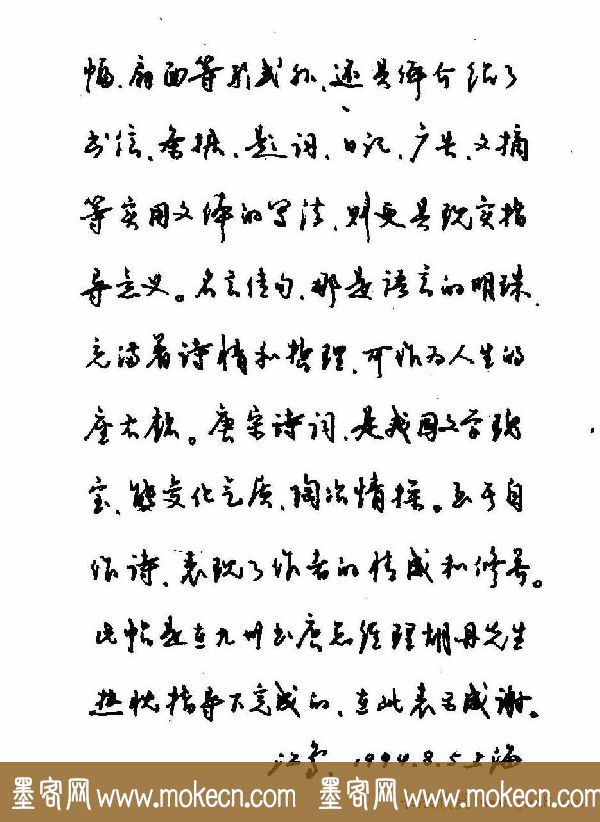 幅、扇面等形式外,还具体介绍了
书信、条据、题词、日记、广告、文摘
等实用文体的写法,则更具现实指
导意义。名言佳句,那是语言的明珠,
充满着诗情和哲理,可作为人生的
座右铭。唐宋诗词,是我国文学瑰
宝,能变化气质,陶冶情操。至于自
作诗,表现了作者的情感和修养。
此帖是在九州书店总经理胡丹先生
热忱指导下完成的,在此表示感谢。
1994.8.5上海
墨客网 www.mokecn.com 墨客网 www.mokecn.com